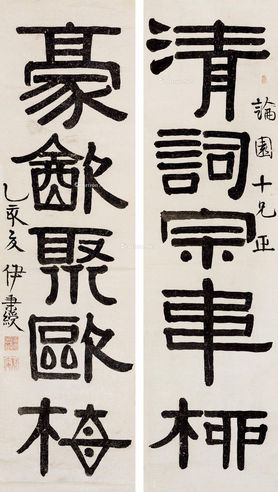 清詞宗韋柳
論園十兄正
豪㱃聚歐梅
乙亥夏 伊秉綬